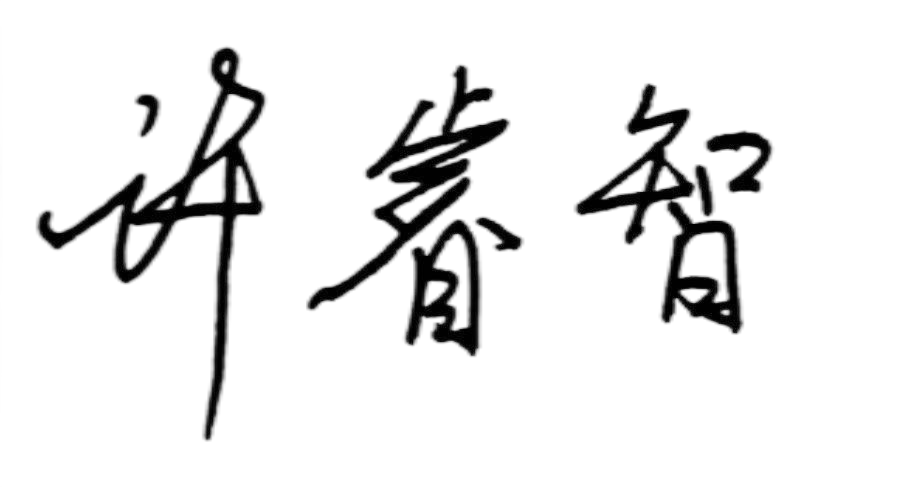 许睿智